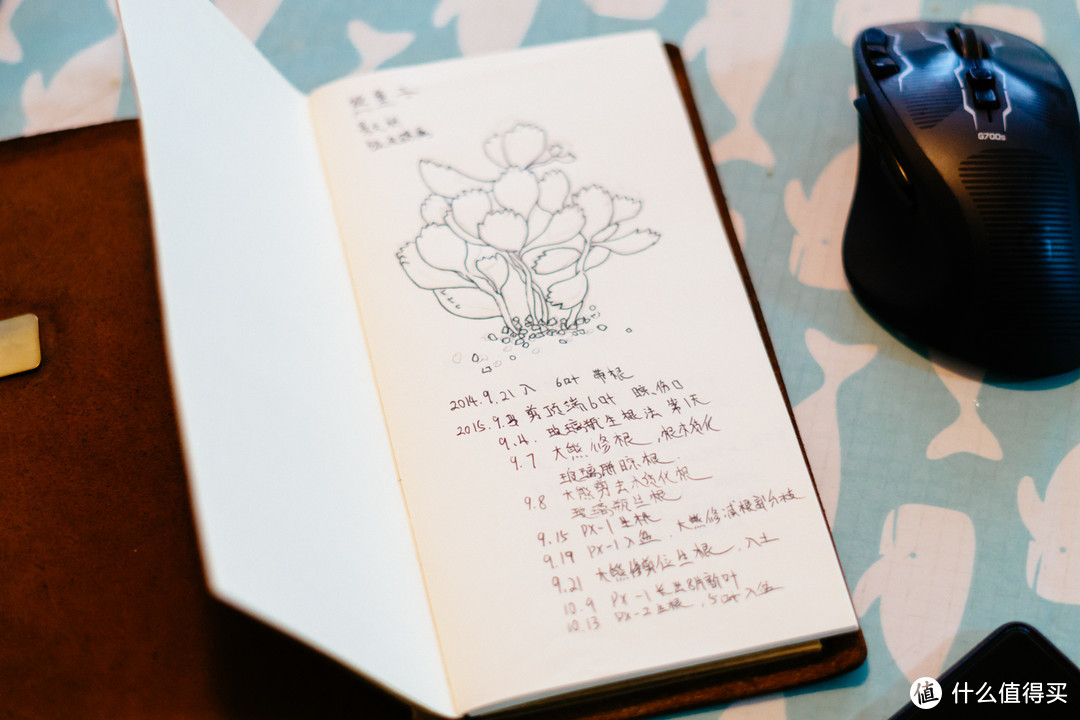 熊童子
景天科
银波锦属
2014.9.21 入 6叶 带根
2015.9.3 剪顶端6叶 晾伤口
9.4. 玻璃瓶生根法 第1天
9.7 大熊修根,根木质化
玻璃瓶晾根.
9.8 大熊剪去木质化根
玻璃瓶生根
9.15 PX-1 生根
9.19 PX-1入盆. 大熊修减根部分枝
9.21 大熊 生根, 入土
10.9 PX-1 长出 新叶
10.13 PX-2 生根, 入盆
G700s
值 什么值得买